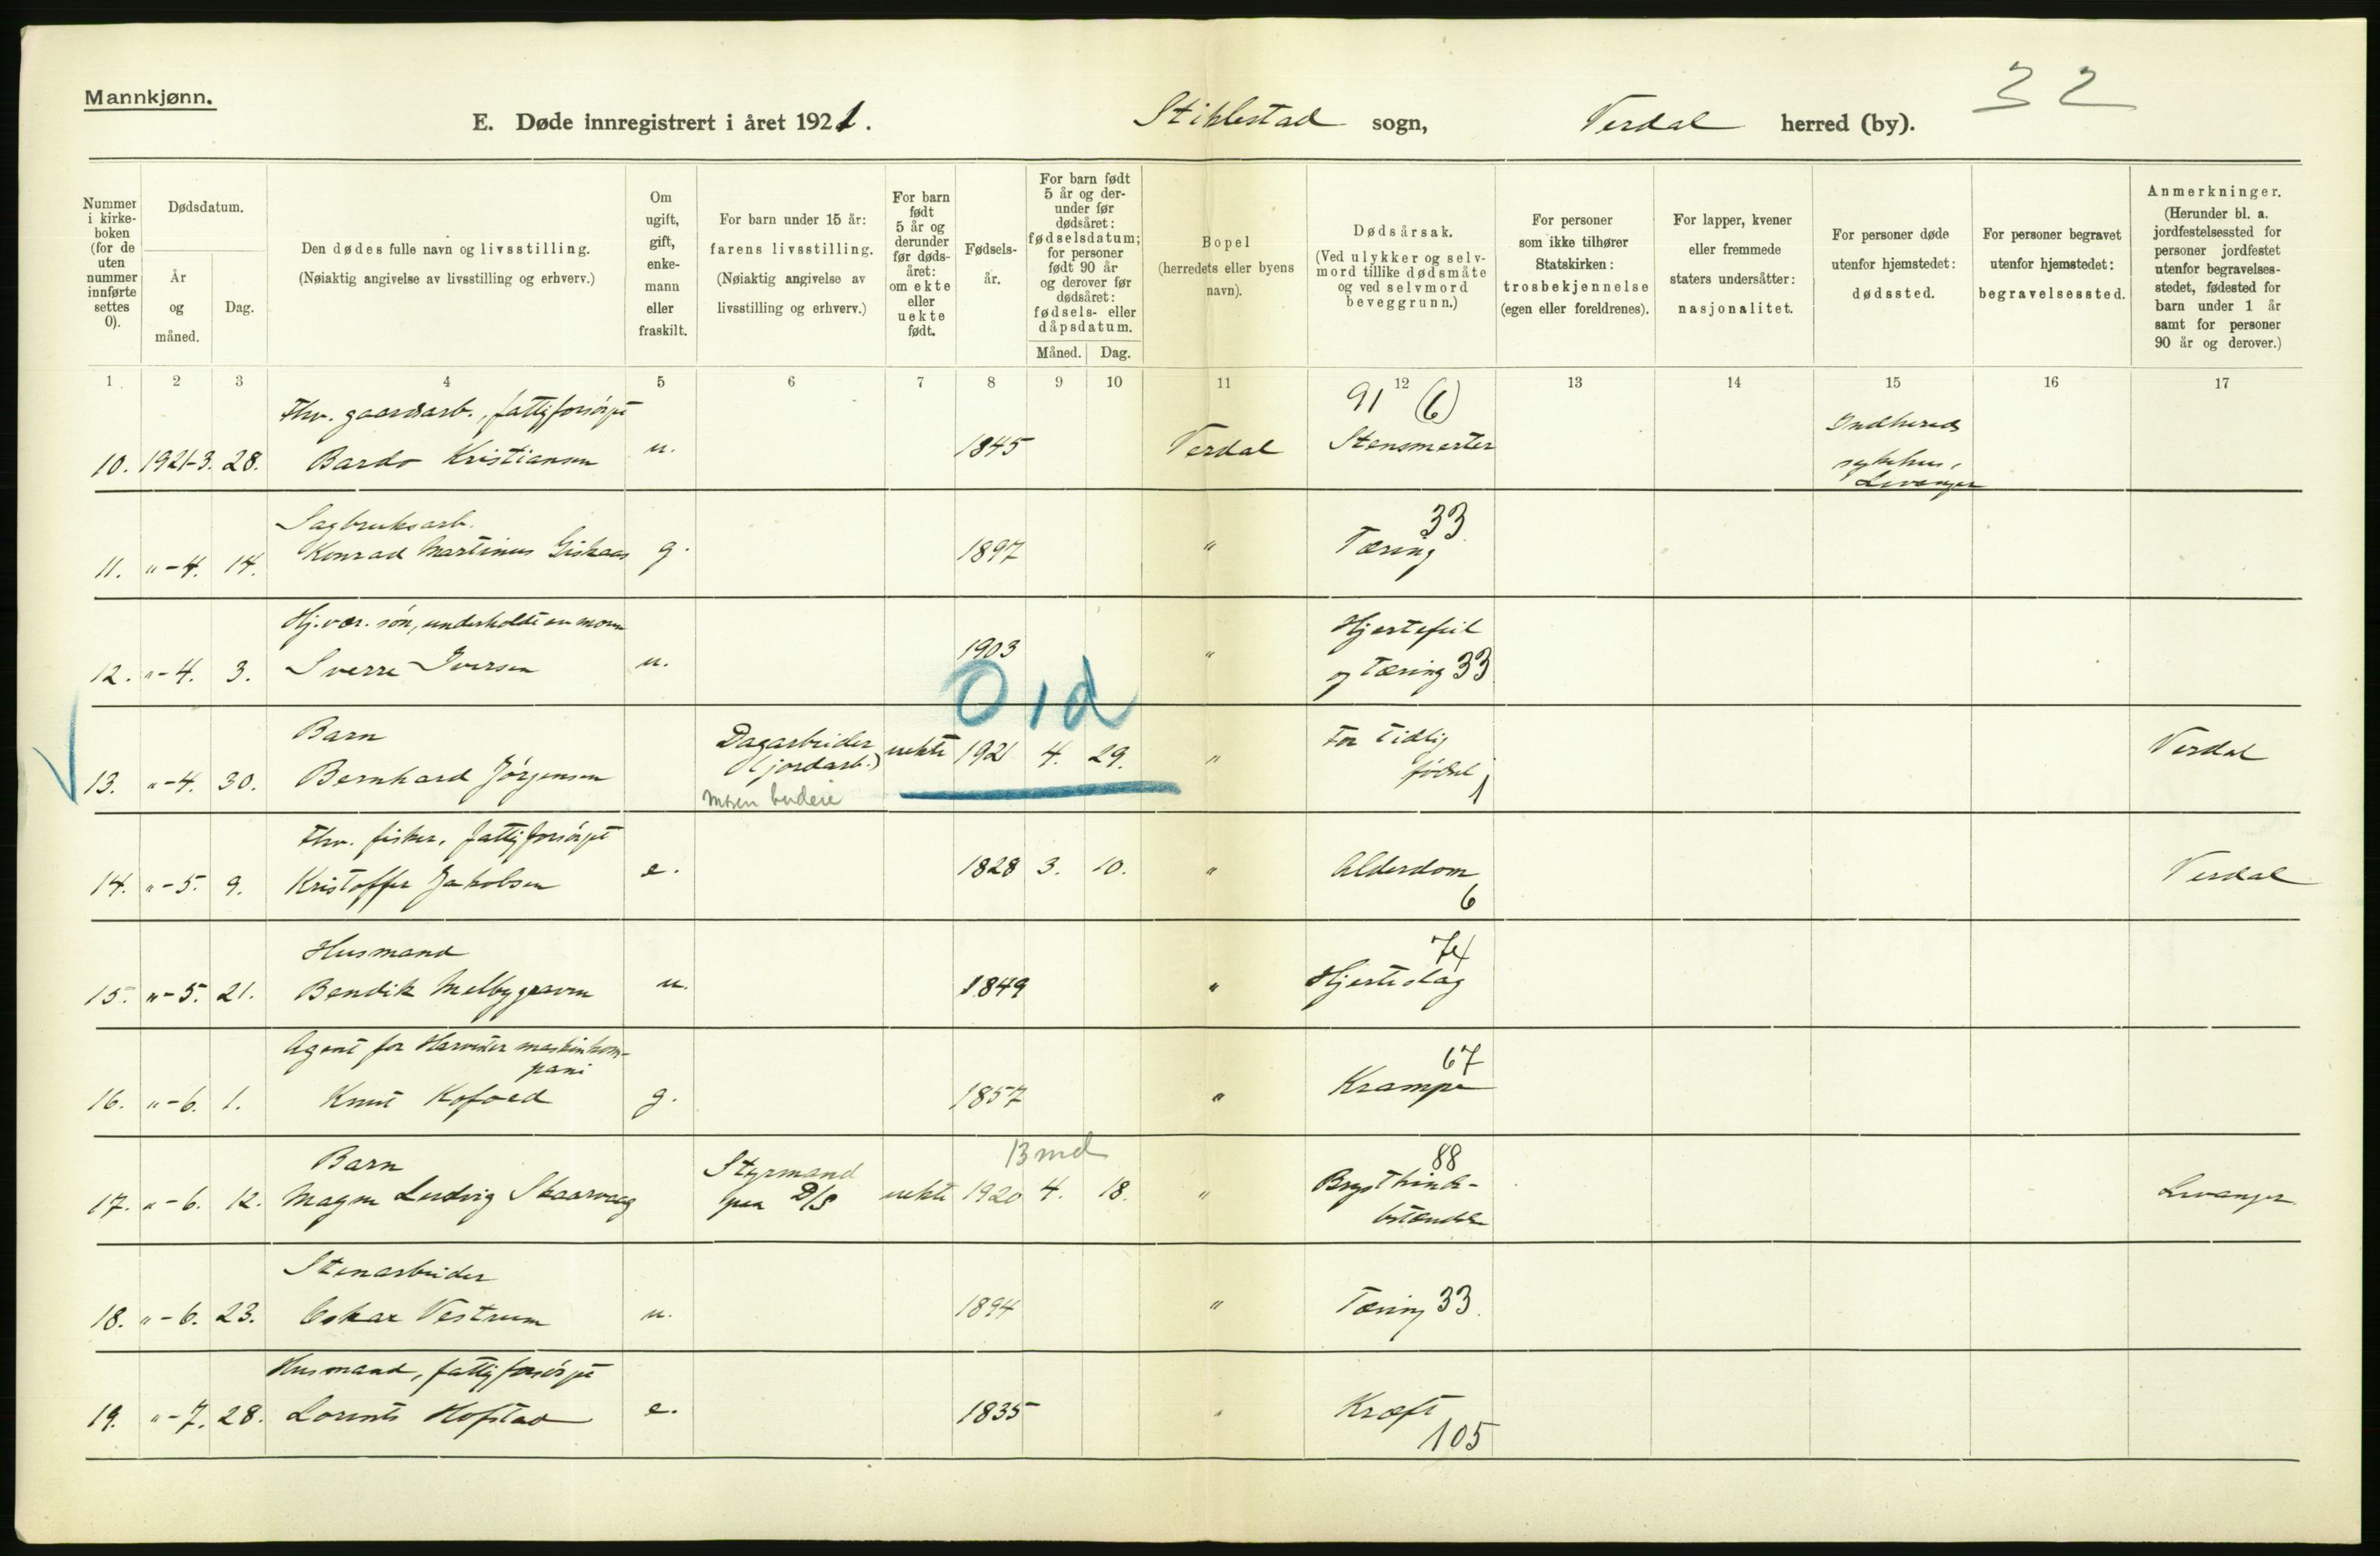 Mannkjønn.
32
E. Døde innregistrert i året 1921. Stiklestad sogn, Verdal herred (by).
Nummer i kirke-boken (for de uten nummer innførte settes 0).
Dødsdatum.
År og måned.
Dag.
Den dødes fulle navn og livsstilling.
(Nøiaktig angivelse av livsstilling og erhverv.)
Om ugift, gift, enke-mann eller fraskilt.
For barn under 15 år: farens livsstilling.
(Nøiaktig angivelse av livsstilling og erhverv.)
For barn født 5 år og derunder før døds-året: om ekte eller uekte født.
Fødsels-år.
For barn født 5 år og der-under før dødsåret: fødselsdatum; for personer født 90 år og derover før dødsåret: fødsels- eller dåpsdatum.
Måned. Dag.
Bopel (herredets eller byens navn).
Dødsårsak.
(Ved ulykker og selv-mord tillike dødsmåte og ved selvmord beveggrunn.)
For personer som ikke tilhører Statskirken: trosbekjennelse (egen eller foreldrenes).
For lapper, kvener eller fremmede staters undersåtter: nasjonalitet.
For personer døde utenfor hjemstedet: dødssted.
For personer begravet utenfor hjemstedet: begravelsessted.
Anmerkninger.
(Herunder bl. a. jordfestelsessted for personer jordfestet utenfor begravelses-stedet, fødested for barn under 1 år samt for personer 90 år og derover.)
1 2 3 4 5 6 7 8 9 10 11 12 13 14 15 16 17
Fhv. gaardsarb., fattigforsörget 91 (6) Indherreds
10. 1921-3. 28. Bardo Kristiansen u. 1845 Verdal Stensmerter sykehus,
Levanger
Sagbruksarb. 33
11. "-4. 14. Konrad Martinus Giskaas g. 1897 " Tæring
Hj.vær. sön, underholdt av moren Hjertefeil
12. "-4. 3. Sverre Iversen u. 1903 " og Tæring 33
0 1 d
Barn Dagarbeider For tidlig
13. "-4. 30. Bernhard Jørgensen (jordarb.) uekte 1921 4. 29. " födsel 1 Verdal
moren budeie
Fhv. fisker, fattigforsörget
14. "-5. 9. Kristoffer Jakobsen e. 1828 3. 10. " Alderdom Verdal
6
Husmand 74
15. "-5. 21. Bendik Melbygraven u. 1849 " Hjerteslag
Agent for Harvester maskinkom-
pani 67
16. "-6. 1. Knut Kofoed g. 1857 " Krampe
13 md
Barn Styrmand 88
17. "-6. 12. Magne Ludvig Skaarvaag paa D/S uekte 1920 4. 18. " Brysthinde- Levanger
betændelse
Stenarbeider
18. "-6. 23. Oskar Vestrum u. 1894 " Tæring 33.
Husmand, fattigforsörget
19. "-7. 28. Lorents Hofstad e. 1835 " Kræft
105